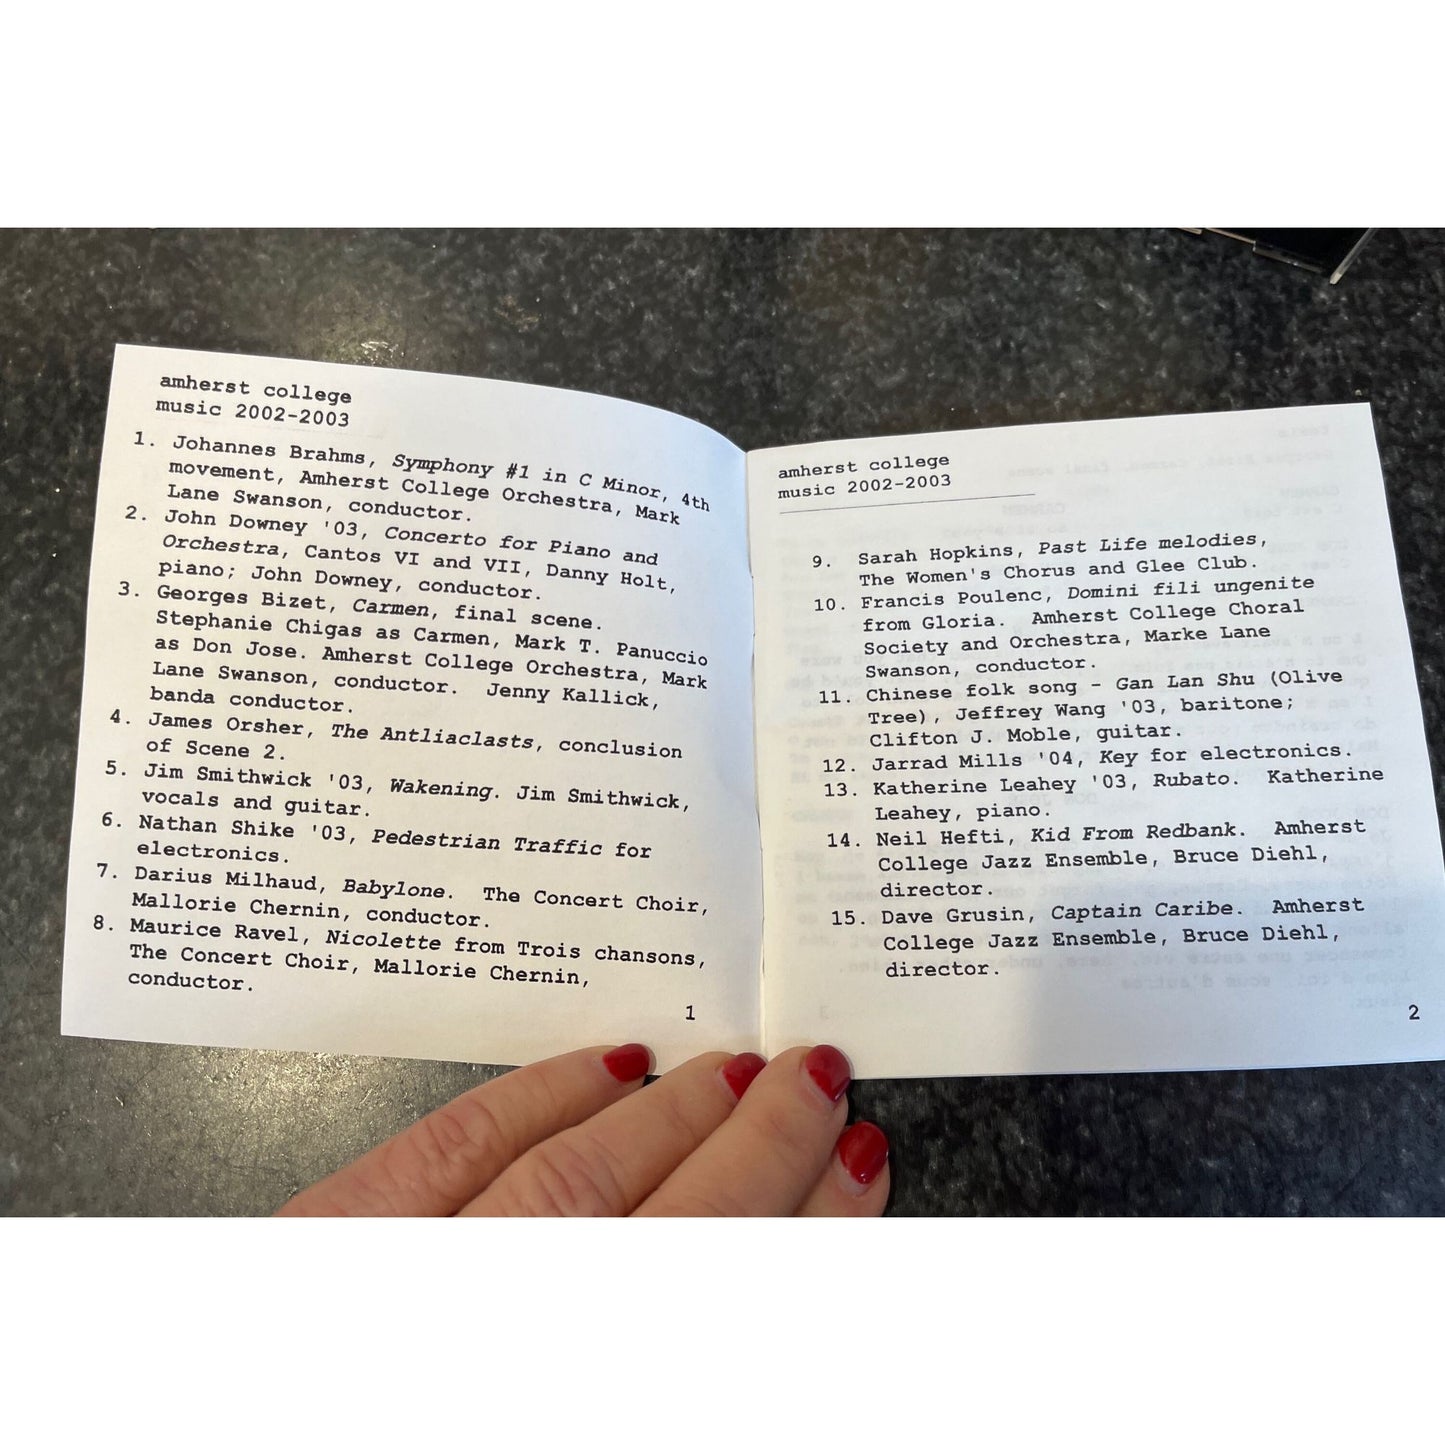 amherst college
music 2002-2003
1. Johannes Brahms, Symphony #1 in C Minor, 4th
movement, Amherst College Orchestra, Mark
Lane Swanson, conductor.
2. John Downey '03, Concerto for Piano and
Orchestra, Cantos VI and VII, Danny Holt,
piano; John Downey, conductor.
3. Georges Bizet, Carmen, final scene.
Stephanie Chigas as Carmen, Mark T. Panuccio
as Don Jose. Amherst College Orchestra, Mark
Lane Swanson, conductor. Jenny Kallick,
banda conductor.
4. James Orsher, The Antliaclasts, conclusion
of Scene 2.
5. Jim Smithwick '03, Wakening. Jim Smithwick,
vocals and guitar.
6. Nathan Shike '03, Pedestrian Traffic for
electronics.
7. Darius Milhaud, Babylone. The Concert Choir,
Mallorie Chernin, conductor.
8. Maurice Ravel, Nicolette from Trois chansons,
The Concert Choir, Mallorie Chernin,
conductor.
1
amherst college
music 2002-2003
9. Sarah Hopkins, Past Life melodies,
The Women's Chorus and Glee Club.
10. Francis Poulenc, Domini fili ungenite
from Gloria. Amherst College Choral
Society and Orchestra, Marke Lane
Swanson, conductor.
11. Chinese folk song - Gan Lan Shu (Olive
Tree), Jeffrey Wang '03, baritone;
Clifton J. Moble, guitar.
12. Jarrad Mills '04, Key for electronics.
13. Katherine Leahey '03, Rubato. Katherine
Leahey, piano.
14. Neil Hefti, Kid From Redbank. Amherst
College Jazz Ensemble, Bruce Diehl,
director.
15. Dave Grusin, Captain Caribe. Amherst
College Jazz Ensemble, Bruce Diehl,
director.
2